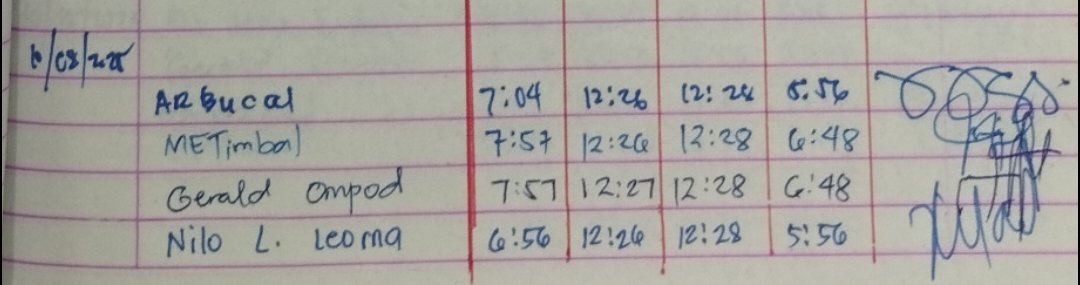 10/08/2025
AR Bucal 7:04 12:26 12:28 5:56
METimbal 7:57 12:26 12:28 6:48
Gerald Ompod 7:57 12:27 12:28 6:48
Nilo L. Leoma 6:56 12:26 12:28 5:56